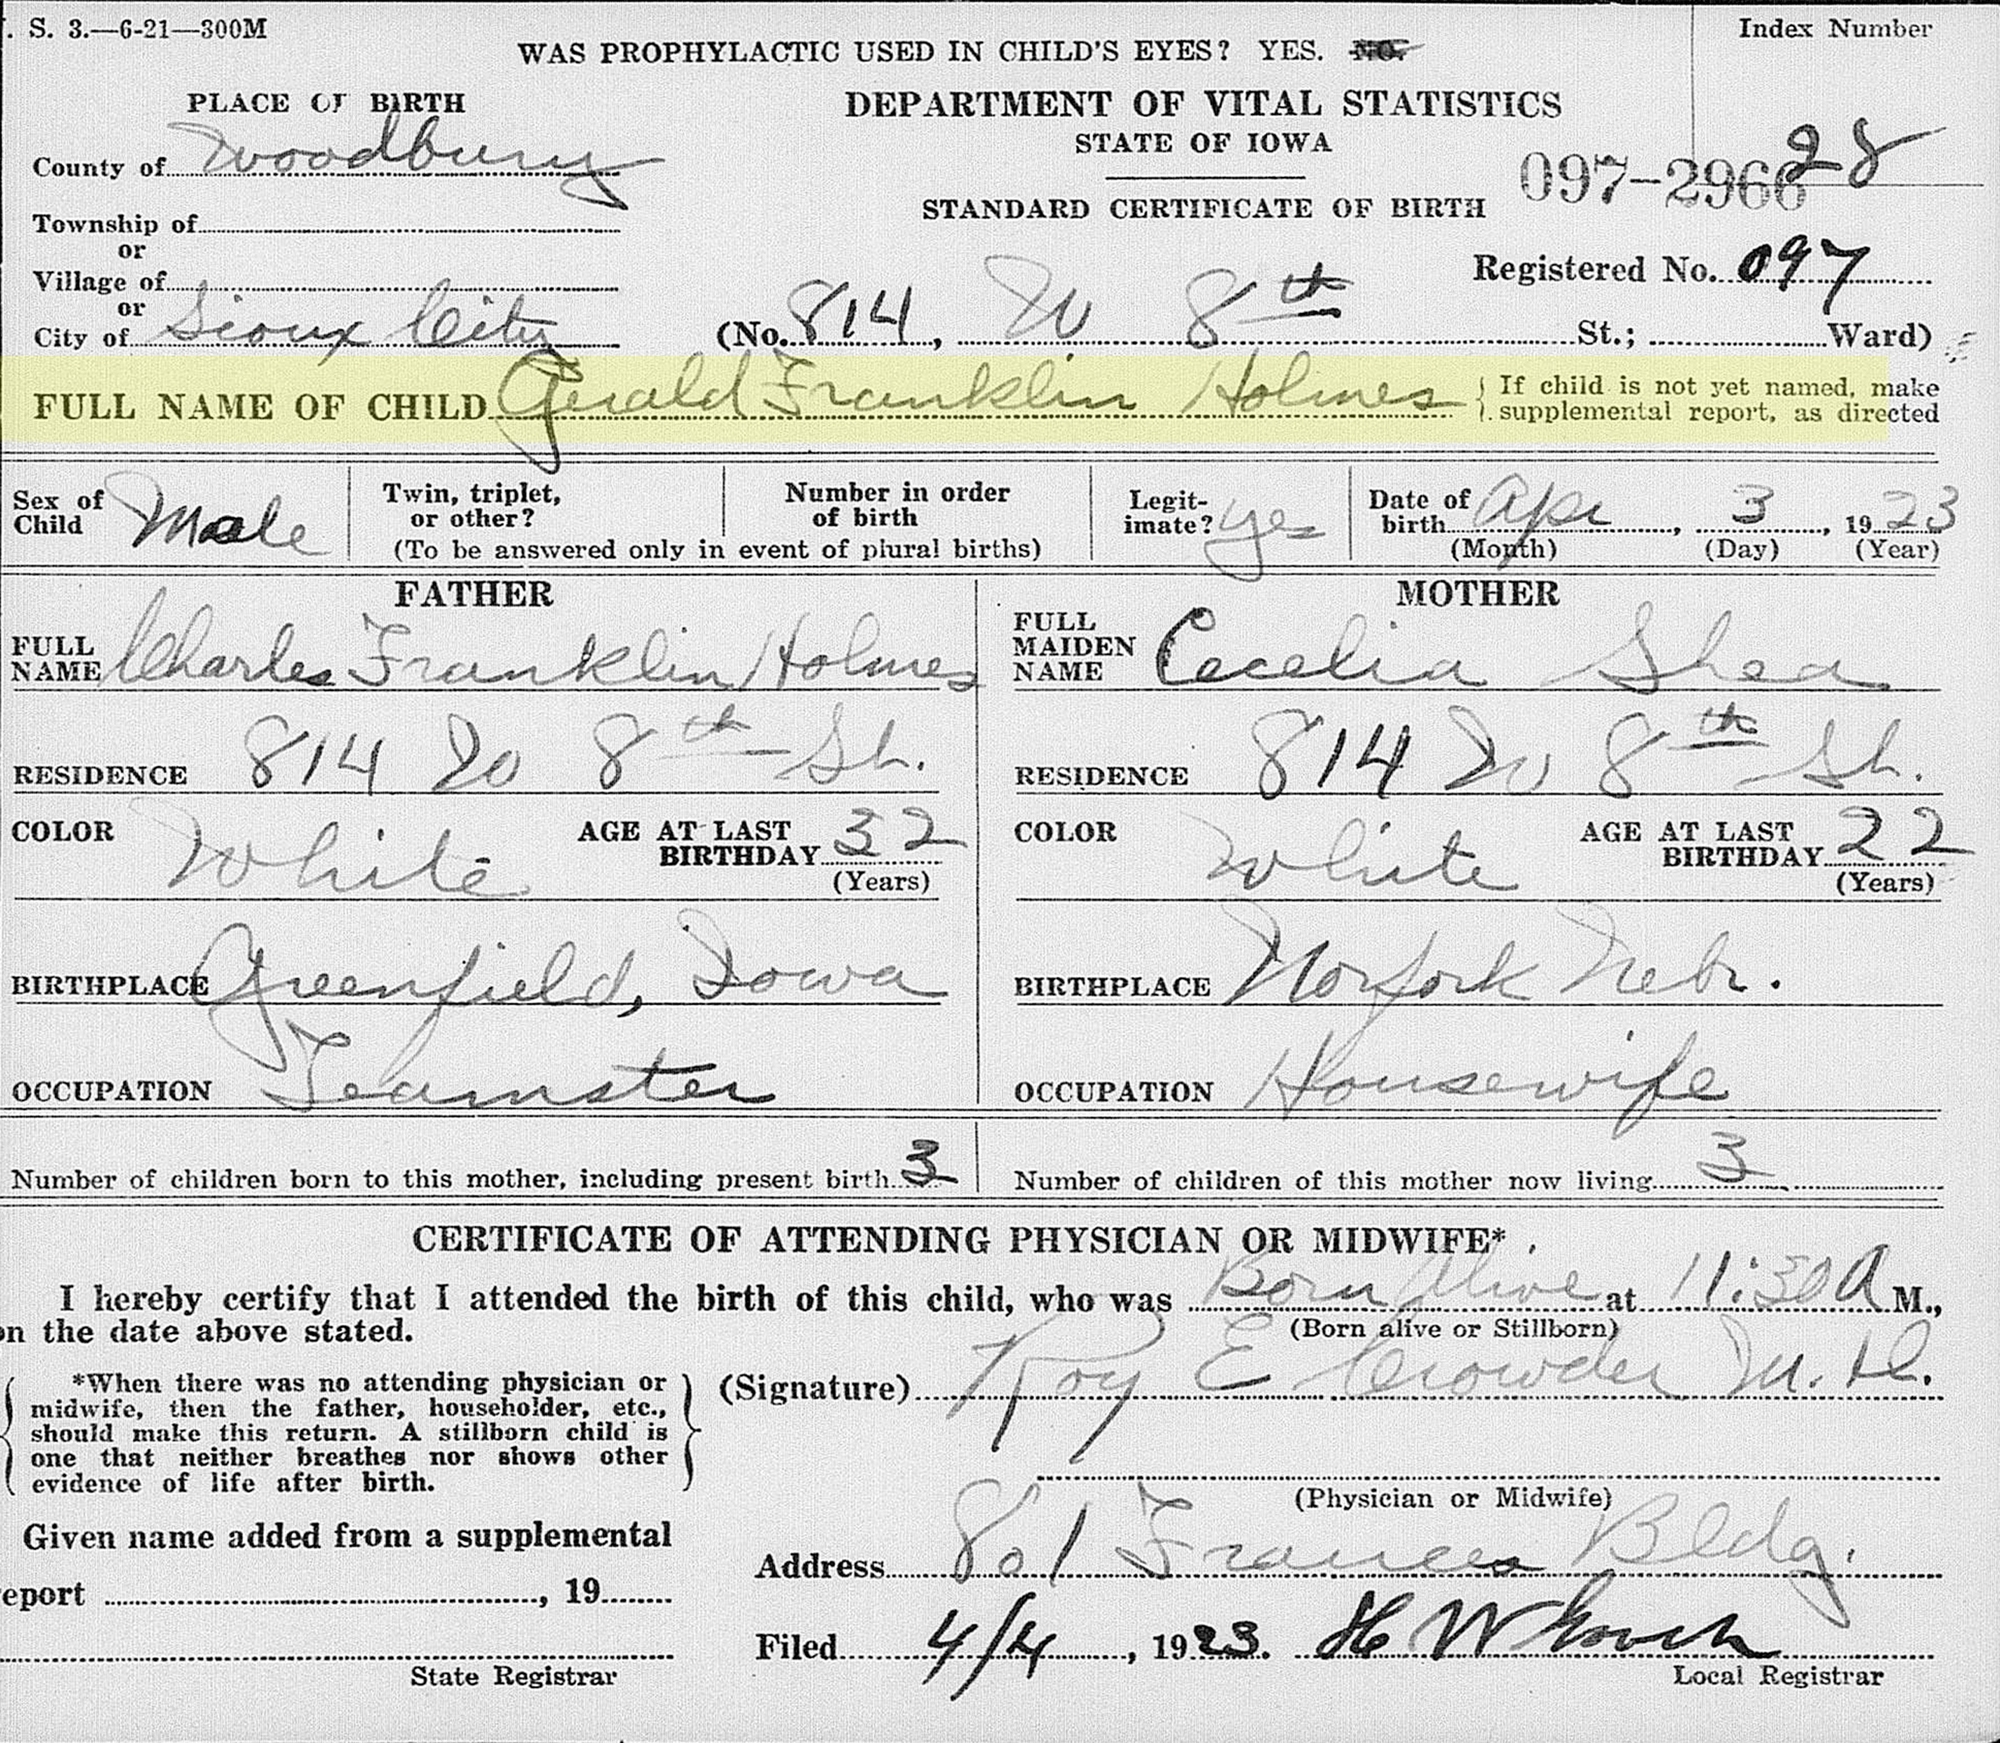 . S. 3.—6-21—300M
Index Number
WAS PROPHYLACTIC USED IN CHILD'S EYES? YES. NO.
PLACE OF BIRTH
DEPARTMENT OF VITAL STATISTICS
STATE OF IOWA
28
County of Woodbury
097-2966
STANDARD CERTIFICATE OF BIRTH
Township of
or
Village of
Registered No. 097
or
City of Sioux City (No. 814, W 8th St.; Ward)
FULL NAME OF CHILD Gerald Franklin Holmes { If child is not yet named, make
supplemental report, as directed
Sex of Child Male
Twin, triplet, or other?
Number in order of birth
(To be answered only in event of plural births)
Legit-imate? yes
Date of birth Apr, 3, 1923
(Month) (Day) (Year)
FATHER
FULL NAME Charles Franklin Holmes
RESIDENCE 814 W 8th St.
COLOR White AGE AT LAST BIRTHDAY 32
(Years)
BIRTHPLACE Greenfield, Iowa
OCCUPATION Teamster
MOTHER
FULL MAIDEN NAME Cecelia Shea
RESIDENCE 814 W 8th St.
COLOR White AGE AT LAST BIRTHDAY 22
(Years)
BIRTHPLACE Norfork Nebr.
OCCUPATION Housewife
Number of children born to this mother, including present birth 3
Number of children of this mother now living 3
CERTIFICATE OF ATTENDING PHYSICIAN OR MIDWIFE*
I hereby certify that I attended the birth of this child, who was Born Alive at 11:30 A M.,
on the date above stated.
(Born alive or Stillborn)
*When there was no attending physician or
midwife, then the father, householder, etc.,
should make this return. A stillborn child is
one that neither breathes nor shows other
evidence of life after birth.
(Signature) Roy E Crowder M.D.
(Physician or Midwife)
Given name added from a supplemental
eport , 19
State Registrar
Address 801 Frances Bldg.
Filed 4/4, 1923. H W
Local Registrar